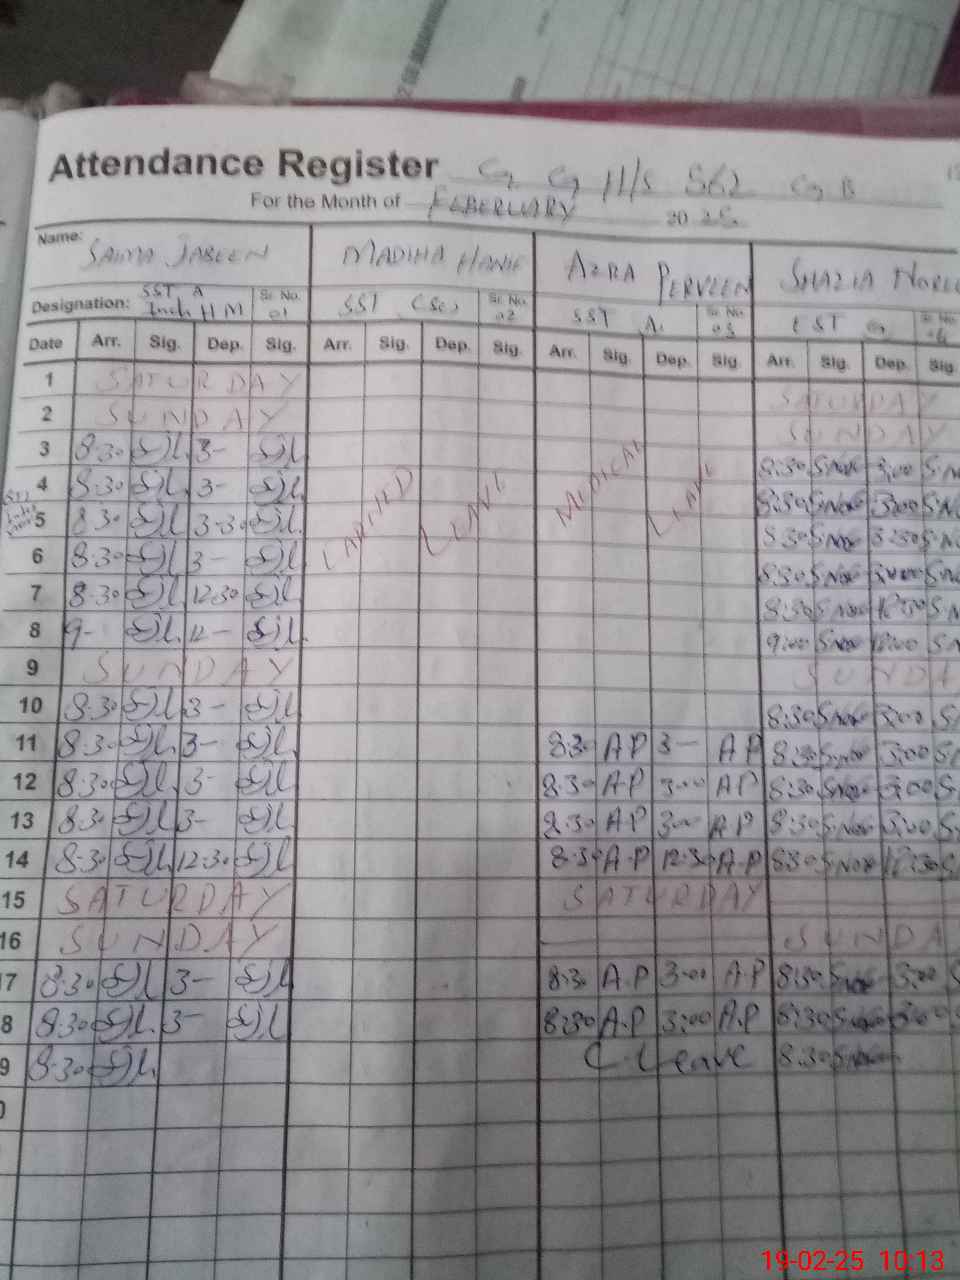 Attendance Register G G H/S 562 G B
For the Month of FEBERUARY 2025
Name: SAIMA JABEEN MADIHA HANIF AZRA PERVEEN SHAZIA
Designation: SST A Inch HM Sr. No. 01 SST (Sc) Sr. No. 02 SST A Sr. No. 03 EST Sr. No.
Date Arr. Sig. Dep. Sig. Arr. Sig. Dep. Sig. Arr. Sig. Dep. Sig. Arr. Sig. Dep. Sig
1 SATURDAY SATURDAY
2 SUNDAY SUNDAY
3 8:30 SJL 3- SJL 8:30 S.Noor 3:00
4 8:30 SJL 3- SJL LEAVE MEDICAL LEAVE 8:30 S.Noor 3:00
5 8:30 SJL 3-30 SJL 8:30 S.Noor 3:30
6 8:30 SJL 3- SJL 8:30 S.Noor 3:00
7 8:30 SJL 12:30 SJL 8:30 S.Noor 12:30
8 9- SJL 12- SJL 9:00 S.Noor 12:00
9 SUNDAY SUNDA
10 8:30 SJL 3- SJL 8:30 S.Noor 3:00
11 8:30 SJL 3- SJL 8:30 AP 3- AP 8:30 S.Noor 3:00
12 8:30 SJL 3- SJL 8:30 AP 3:00 AP 8:30 S.Noor 3:00
13 8:30 SJL 3- SJL 8:30 AP 3:00 AP 8:30 S.Noor 3:00
14 8:30 SJL 12:30 SJL 8:30 A.P 12:30 A.P 8:30 S.Noor 12:30
15 SATURDAY SATURDAY
16 SUNDAY SUNDA
7 8:30 SJL 3- SJL 8:30 A.P 3:00 A.P 8:30 S.Noor 3:00
8 8:30 SJL 3- SJL 8:30 A.P 3:00 A.P 8:30 S.Noor 3:00
9 8:30 SJL C. Leave 8:30 S.Noor
0
19-02-25 10:13